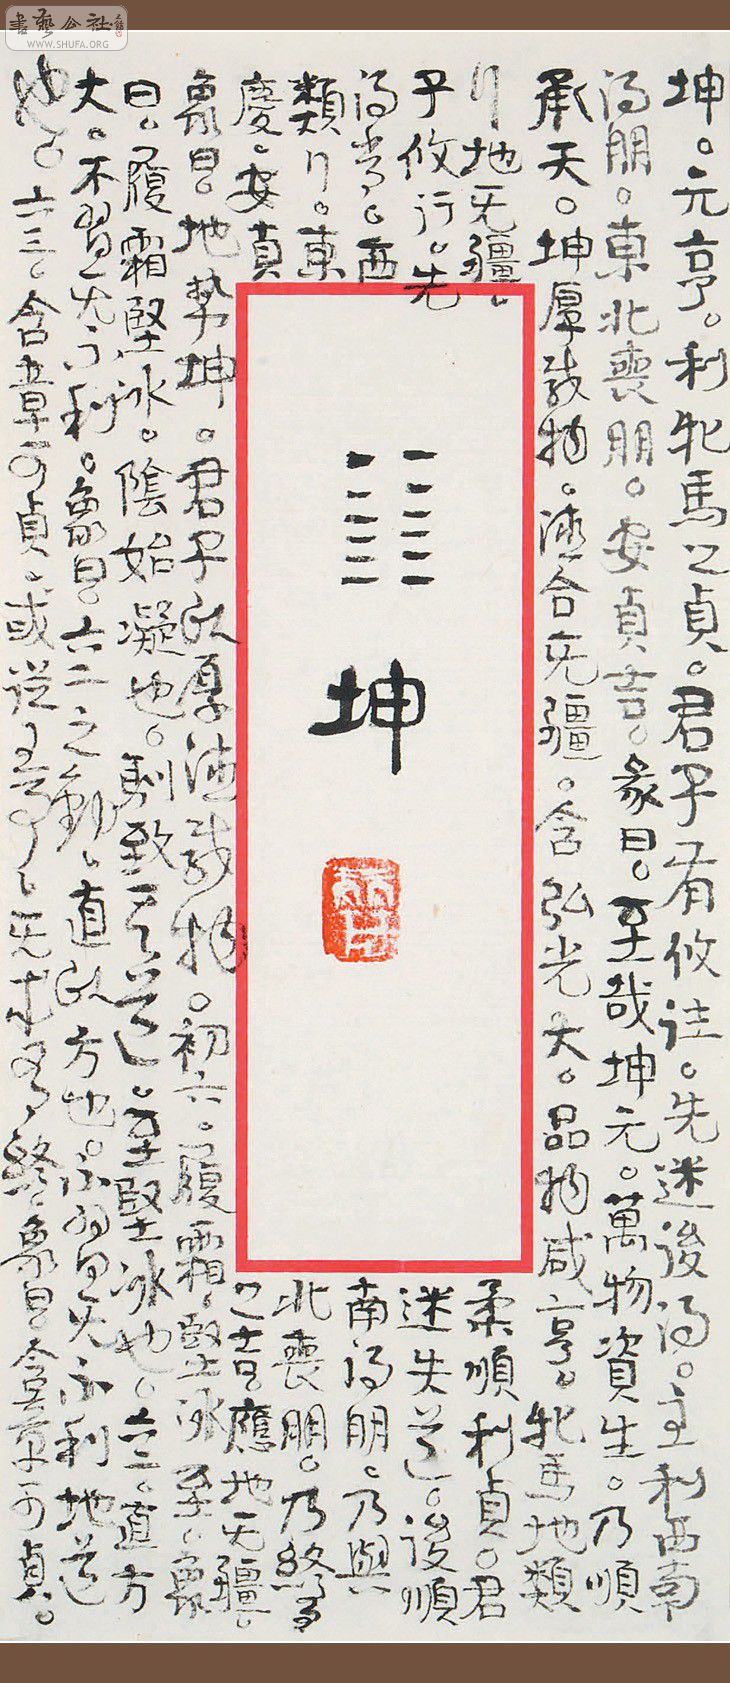 書藝公社
WWW.SHUFA.ORG
坤。元亨。利牝馬之貞。君子有攸往。先迷後得。主利西南
得朋。東北喪朋。安貞吉。彖曰。至哉坤元。萬物資生。乃順
承天。坤厚载物。德合无疆。含弘光大。品物咸亨。牝馬地類
行地无疆。柔順利貞。君
子攸行。先迷失道。後順
得常。西南得朋。乃與
類行。東北喪朋。乃終有
慶。安貞之吉。應地无疆。
象曰。地势坤。君子以厚德载物。初六。履霜。堅冰至。象
曰。履霜堅冰。陰始凝也。馴致其道。至堅冰也。六二。直方
大。不習无不利。象曰。六二之動。直以方也。不習无不利地道
光也。六三。含章可貞。或從王事。无成有終。象曰。含章可貞。
坤